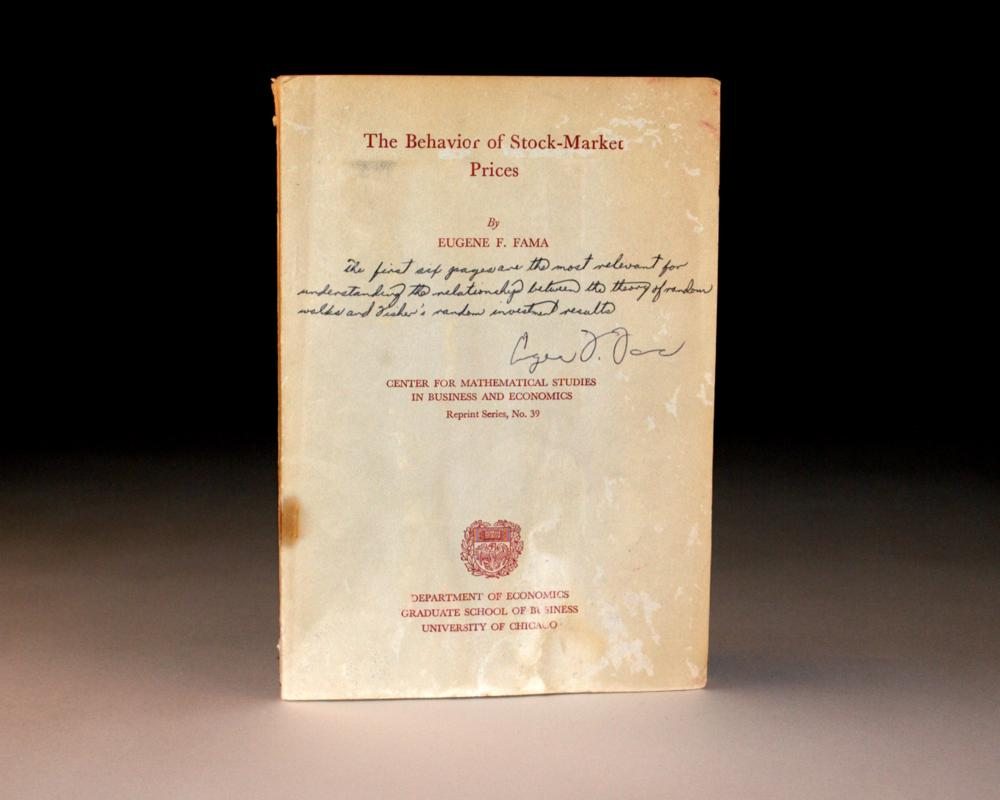 The Behavior of Stock-Market
Prices
By
EUGENE F. FAMA
The first six pages are the most relevant for
understanding the relationship between the theory of random
walks and Fisher's random investment results
Eugene F. Fama
CENTER FOR MATHEMATICAL STUDIES
IN BUSINESS AND ECONOMICS
Reprint Series, No. 39
DEPARTMENT OF ECONOMICS
GRADUATE SCHOOL OF BUSINESS
UNIVERSITY OF CHICAGO